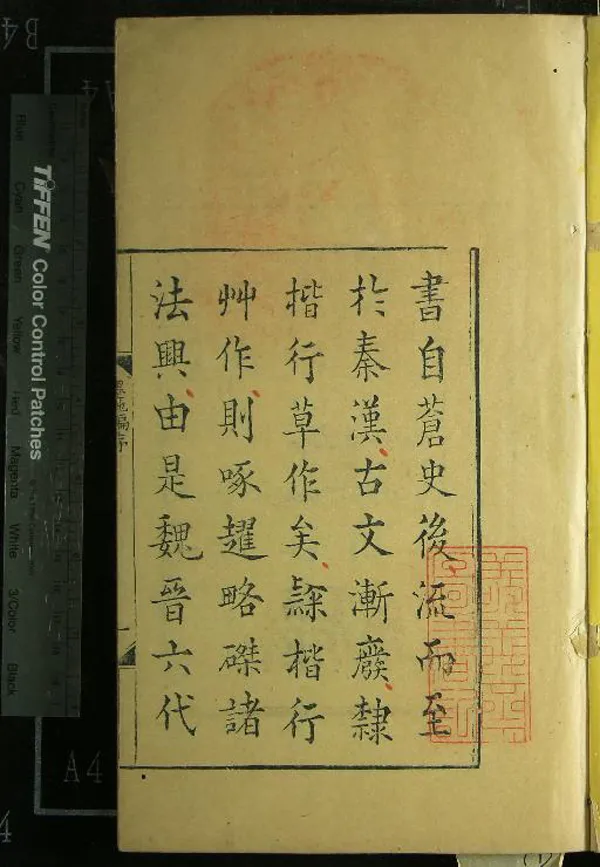 書自蒼史後流而至
於秦漢古文漸廢隸
楷行草作矣隸楷行
艸作則啄趯略磔諸
法興由是魏晉六代
TIFFEN Color Control Patches
Blue
Cyan
Green
Yellow
Red
Magenta
White
3/Color
Black
B4
A4
A4